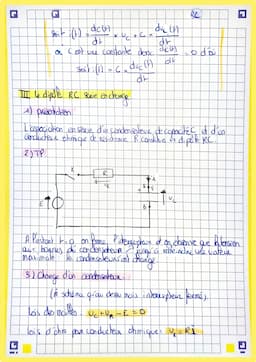 soit i(t) = dc(t)/dt × uc + C × duc(t)/dt
or C est une constante donc dc(t)/dt = 0 d'où
soit i(t) = C × duc(t)/dt
III Le dipôle RC série en charge
1) présentation
L'association en série d'un condensateur de capacité C et d'un
conducteur ohmique de résistance R constitue un dipôle RC.
2) TP
K
R
i
A
E
uc
B
A l'instant t=0 on ferme l'interrupteur et on observe que la tension
aux bornes du condensateur jusqu'à atteindre une valeur
maximale le condensateur est chargé.
3) Charge d'un condensateur
(le schéma qu'au dessus mais interrupteur fermé)
Loi des mailles : uc + uR - E = 0
Loi d'ohm pour conducteur ohmique : uR = Ri